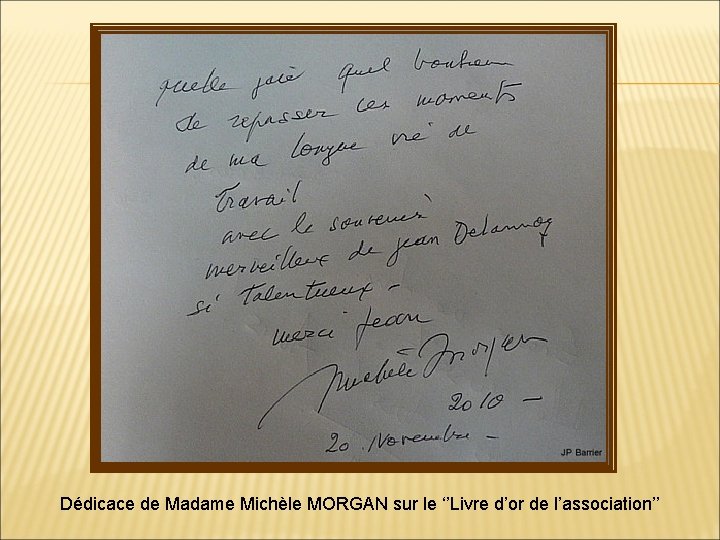 quelle joie quel bonheur
de repasser ces moments
de ma longue vie de
Travail
avec le souvenir
merveilleux de jean Delannoy
si Talentueux -
merci Jean
Michèle Morgan
2010 -
20 Novembre -
JP Barrier
Dédicace de Madame Michèle MORGAN sur le ‘’Livre d’or de l’association’’